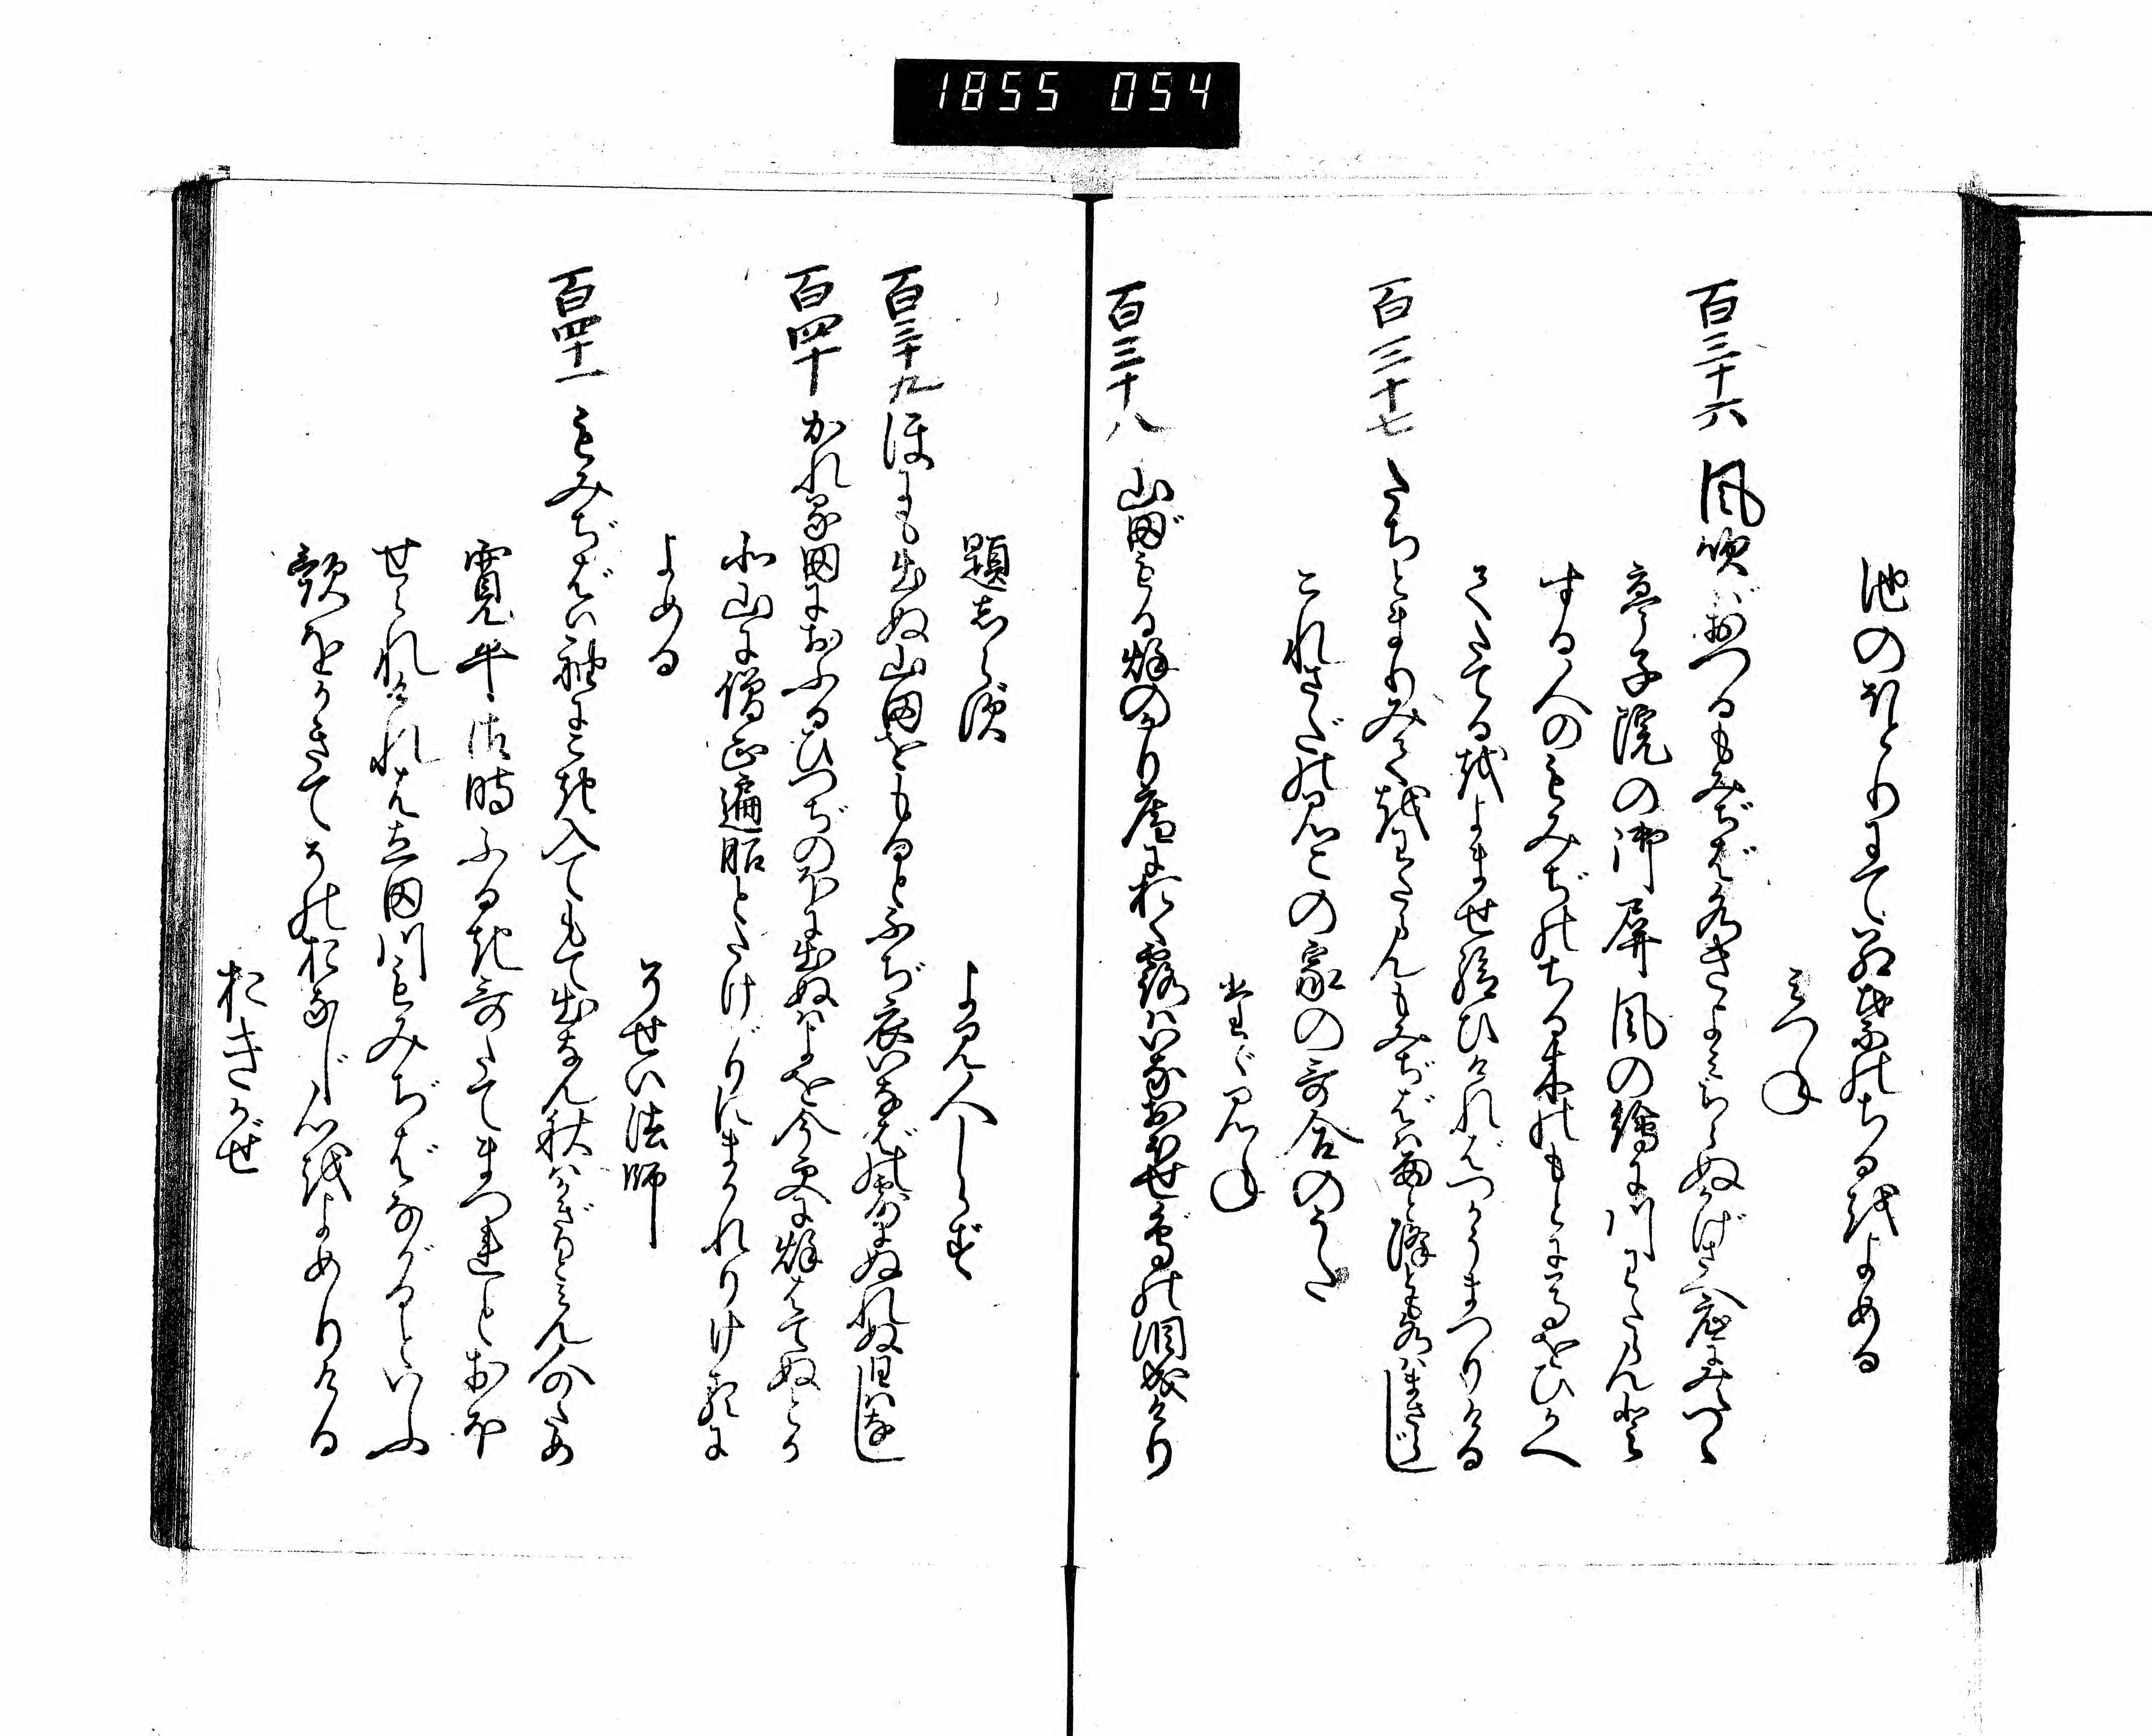 1855 054
池のほとりにて紅葉のちるをよめる
みつね
百三十六 風吹ばおつるもみぢば水きよみちらぬかげさへ底にみえつゝ
亭子院の御屏風の繪に川わたらんと
する人のもみぢのちる木のもとに馬をひかへ
てたてるをよませ給ひければつかうまつりける
百三十七 たちとまりみてをわたらんもみぢばゝ雨と降とも水はまさらじ
これさだのみこの家の哥合のうた
たゞみね
百三十八 山田もる秋のかり庵におく露はいなおほせ鳥の涙成けり
題しらず
よみ人しらず
百三十九 ほにも出ぬ山田をもるとふぢ衣いなばの露にぬれぬ日はなし
百四十 かれる田におふるひつぢのほに出ぬはよを今更に秋はてぬとか
北山に僧正遍昭とたけがりにまかれりけるに
よめる
そせい法師
百四十一 もみぢばゝ袖にこき入てもて出なん秋はかぎりとみん人のため
寛平御時ふるき哥たてまつれとおほ
せられければ立田川もみぢばながるといふ
哥をかきてそのおなじ心をよめりける
おきかぜ